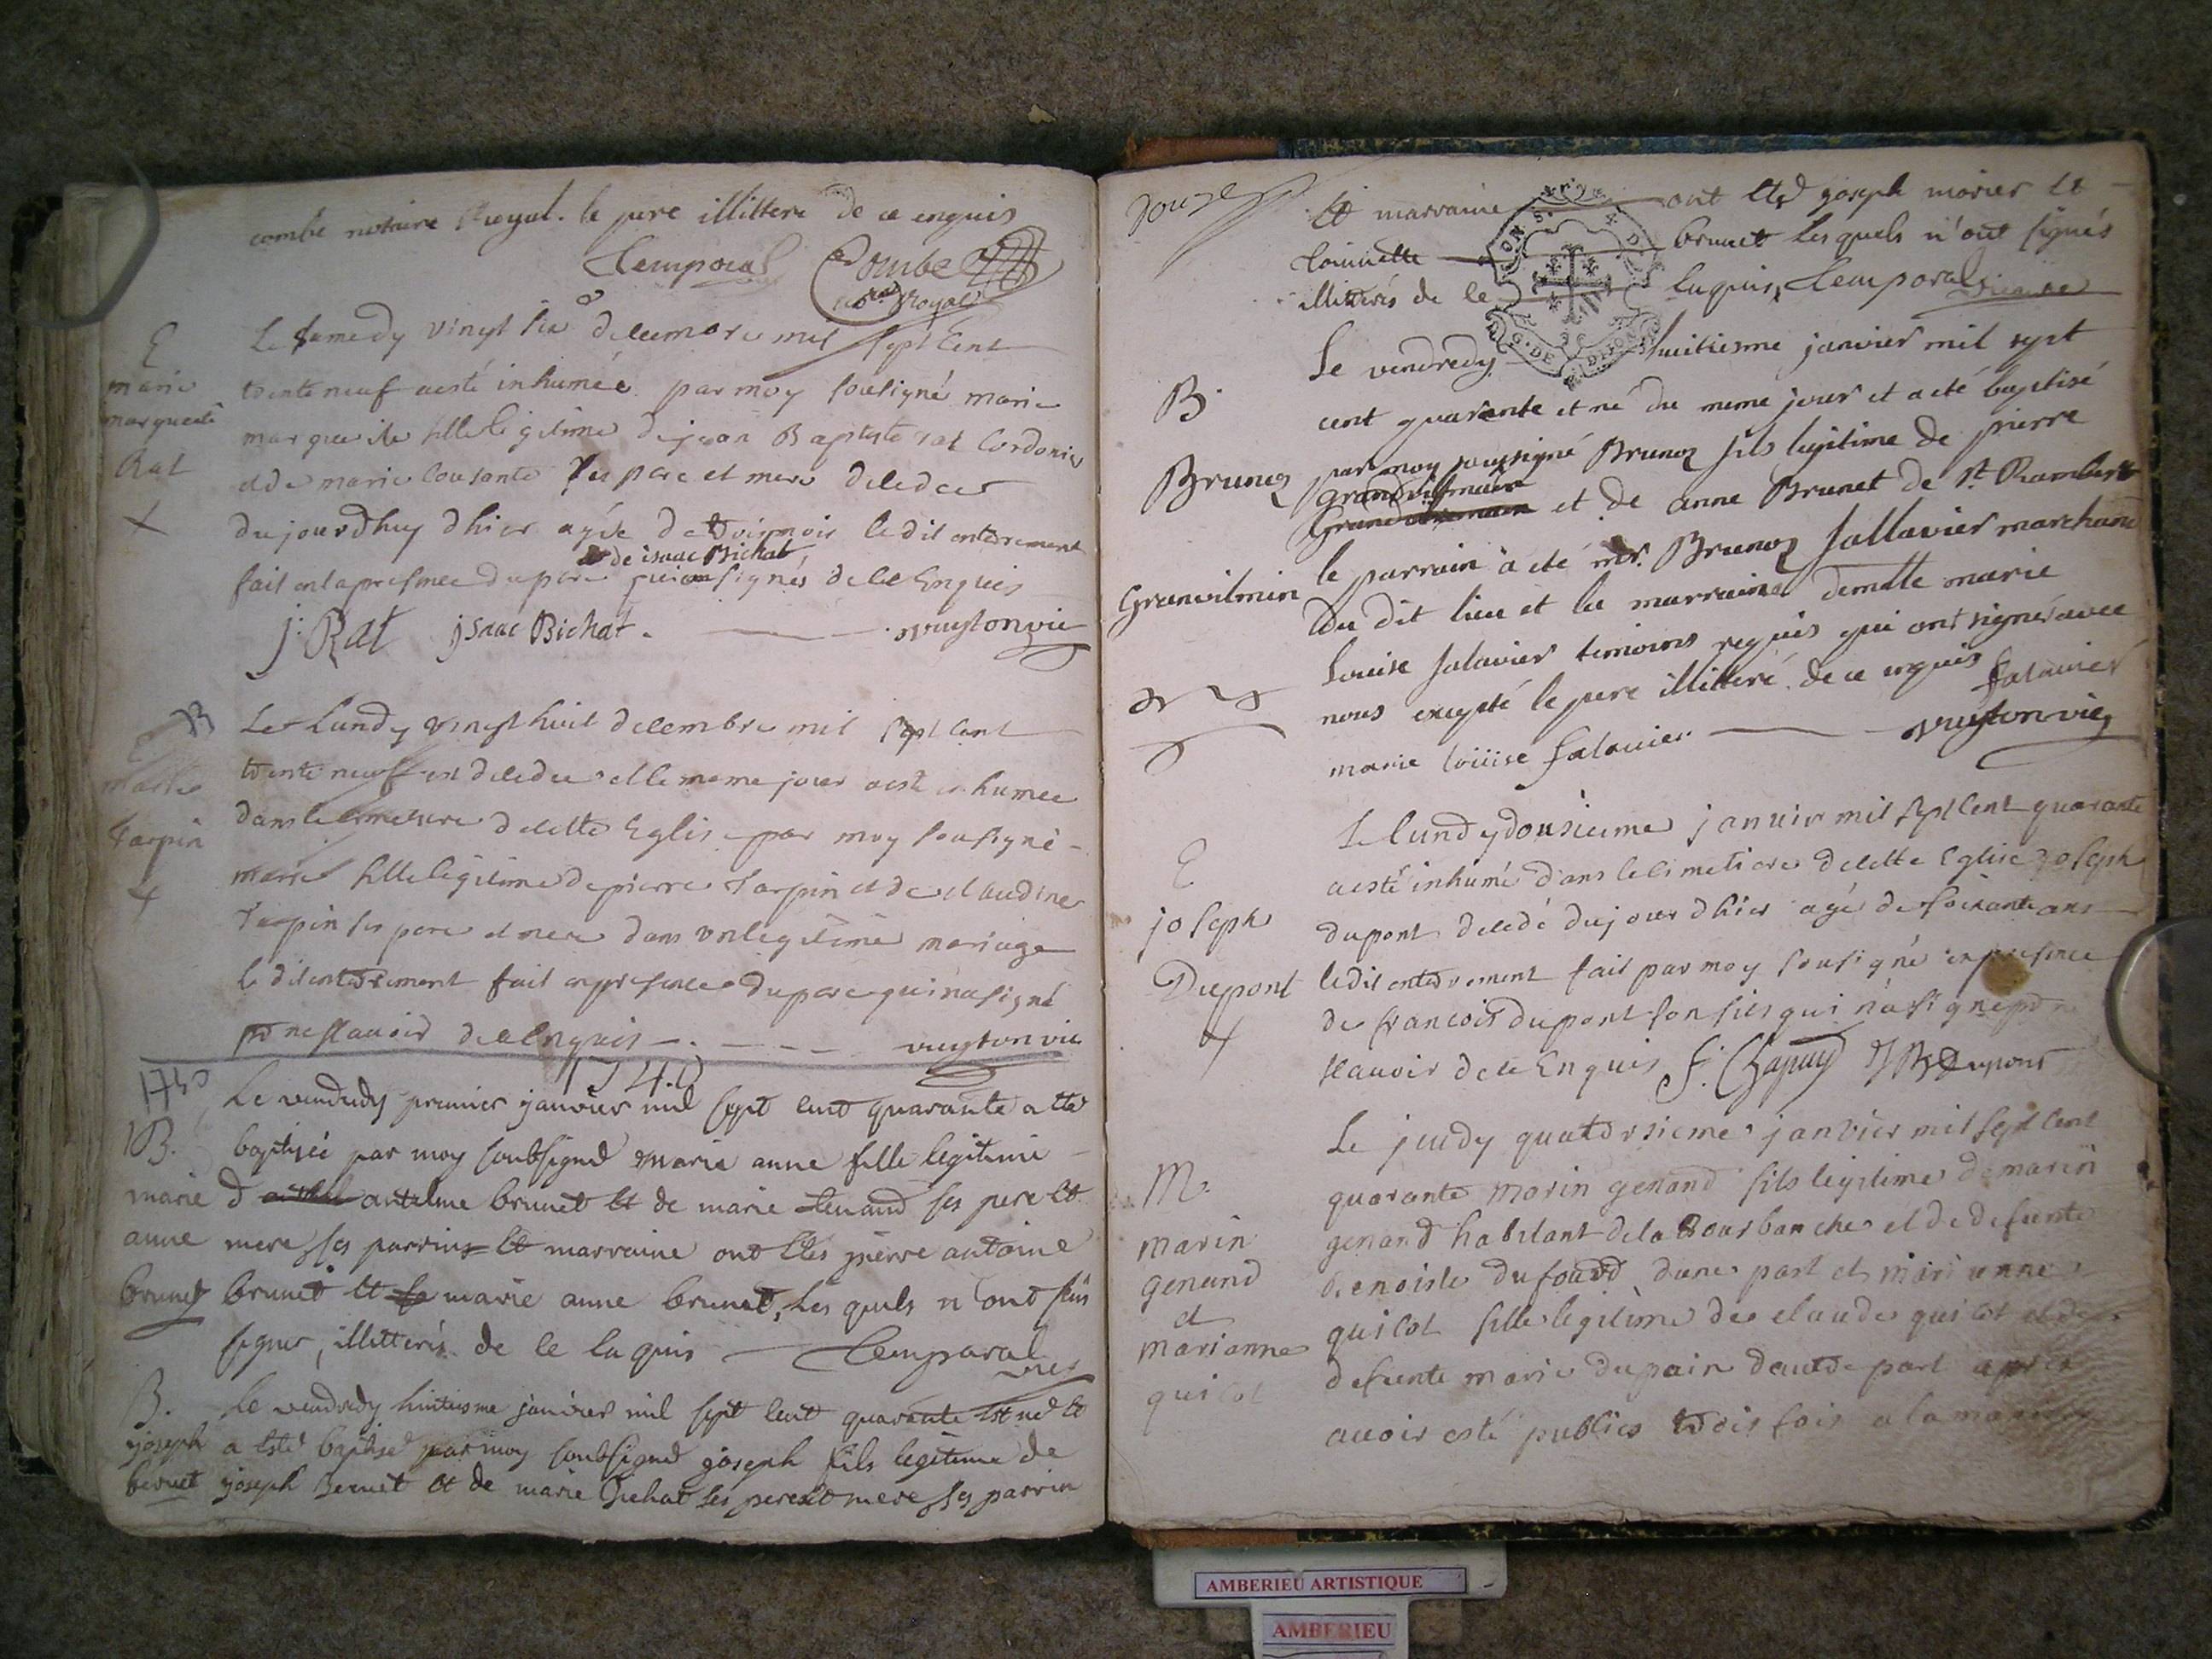 combe notaire Royal. le pere illittere de ce enquis
Temporal Combe
Royal
E
marie
marguerite
Rat
Le samedy vingt six decembre mil sept cent
trente neuf a esté inhumée par moy sousigné marie
marguerite fille legitime de jean Baptiste rat Cordonier
et de marie Cousante ses pere et mere decedee
du jourdhuy dhier agée de trois mois le dit enterrement
de isaac Bichat
fait en la presence du pere qui on signés de ce Enquis
j. Rat jsaac Bichat. vuytonvic
B
marie
Tarpin
Le Lundy vingt huit decembre mil sept cent
trente neuf est decedee et le meme jour a esté inhumee
dans le cimetiere de cette Eglise par moy sousigné
marie fille legitime de pierre Tarpin et de claudine
Tarpin ses pere et mere dans un legitime mariage
le dit enterrement fait en presence du pere qui na signé
pr ne scavoir de ce Enquis vuyton vic
1740
1740
B.
marie
anne
brunet
Le vendredy premier janvier mil sept cent quarante a eté
baptisée par moy soubsigné marie anne fille legitime
d antelme brunet et de marie Tenand ses pere et
mere, ses parrins et marraine ont etés pierre antoine
brunet et marie anne brunet, les quels n'ont pas
signer, illitterés de ce enquis Temporal
vic
B.
joseph
bernet
Le vendredy huitiesme janvier mil sept cent quarante est né et
a esté baptisé par moy soubsigné joseph fils legitime de
joseph Bernet et de marie Bichat ses pere et mere, ses parrin
douze
et marraine ont eté joseph morier et
Toinette brunet les quels n'ont signés
illitterés de ce enquis, Temporal vicaire
B.
Brunoz
Granvilmin
Le vendredy huitiesme janvier mil sept
cent quarante et né du meme jour et a eté baptisé
par moy soussigné Brunoz fils legitime de pierre
grandvilmain
et de anne Brunet de St. Rambert
le parrain a eté mr. Brunoz Sallavier marchand
du dit lieu et la marraine demlle marie
Louise Salavier temoins requis qui ont signés avec
nous excepté le pere illitteré de ce enquis Salavier
marie loüise Salavier vuytonvic
E
joseph
Dupont
Le lundy dousieme janvier mil sept cent quarante
a esté inhumé dans le cimetiere de cette Eglise joseph
dupont decedé du jour dhier agé de soixante ans
ledit enterrement fait par moy sousigné en presence
de francois dupont son fils qui n'a signé pr ne
scavoir de ce Enquis f. Chapuy JB Dupont
M.
marin
genand
et
marianne
quilot
Le jeudy quatorsieme janvier mil sept cent
quarante marin genand fils legitime de marin
genand habitant de la Bourbanche et de defunte
Benoiste dufourd dune part et marianne
quilot fille legitime de claude quilot et de
defunte marie dupain dautre part apres
avoir esté publies trois fois a la
AMBERIEU ARTISTIQUE
AMBERIEU